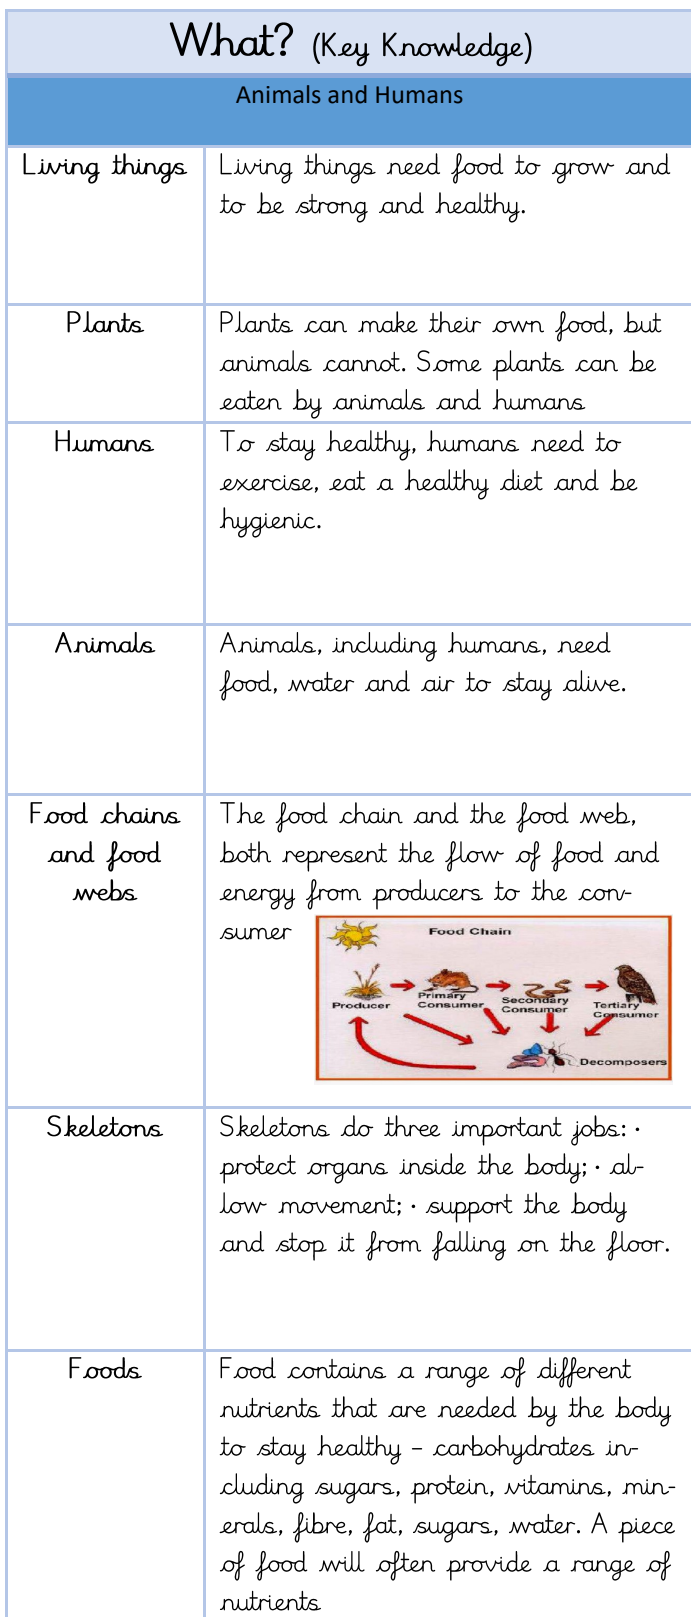 What? (Key Knowledge)
Animals and Humans
Living things
Living things need food to grow and
to be strong and healthy.
Plants
Plants can make their own food, but
animals cannot. Some plants can be
eaten by animals and humans
Humans
To stay healthy, humans need to
exercise, eat a healthy diet and be
hygienic.
Animals
Animals, including humans, need
food, water and air to stay alive.
Food chains
and food
webs
The food chain and the food web,
both represent the flow of food and
energy from producers to the con-
sumer
Food Chain
Producer
Primary
Consumer
Secondary
Consumer
Tertiary
Consumer
Decomposers
Skeletons
Skeletons do three important jobs: ·
protect organs inside the body; · al-
low movement; · support the body
and stop it from falling on the floor.
Foods
Food contains a range of different
nutrients that are needed by the body
to stay healthy – carbohydrates in-
cluding sugars, protein, vitamins, min-
erals, fibre, fat, sugars, water. A piece
of food will often provide a range of
nutrients